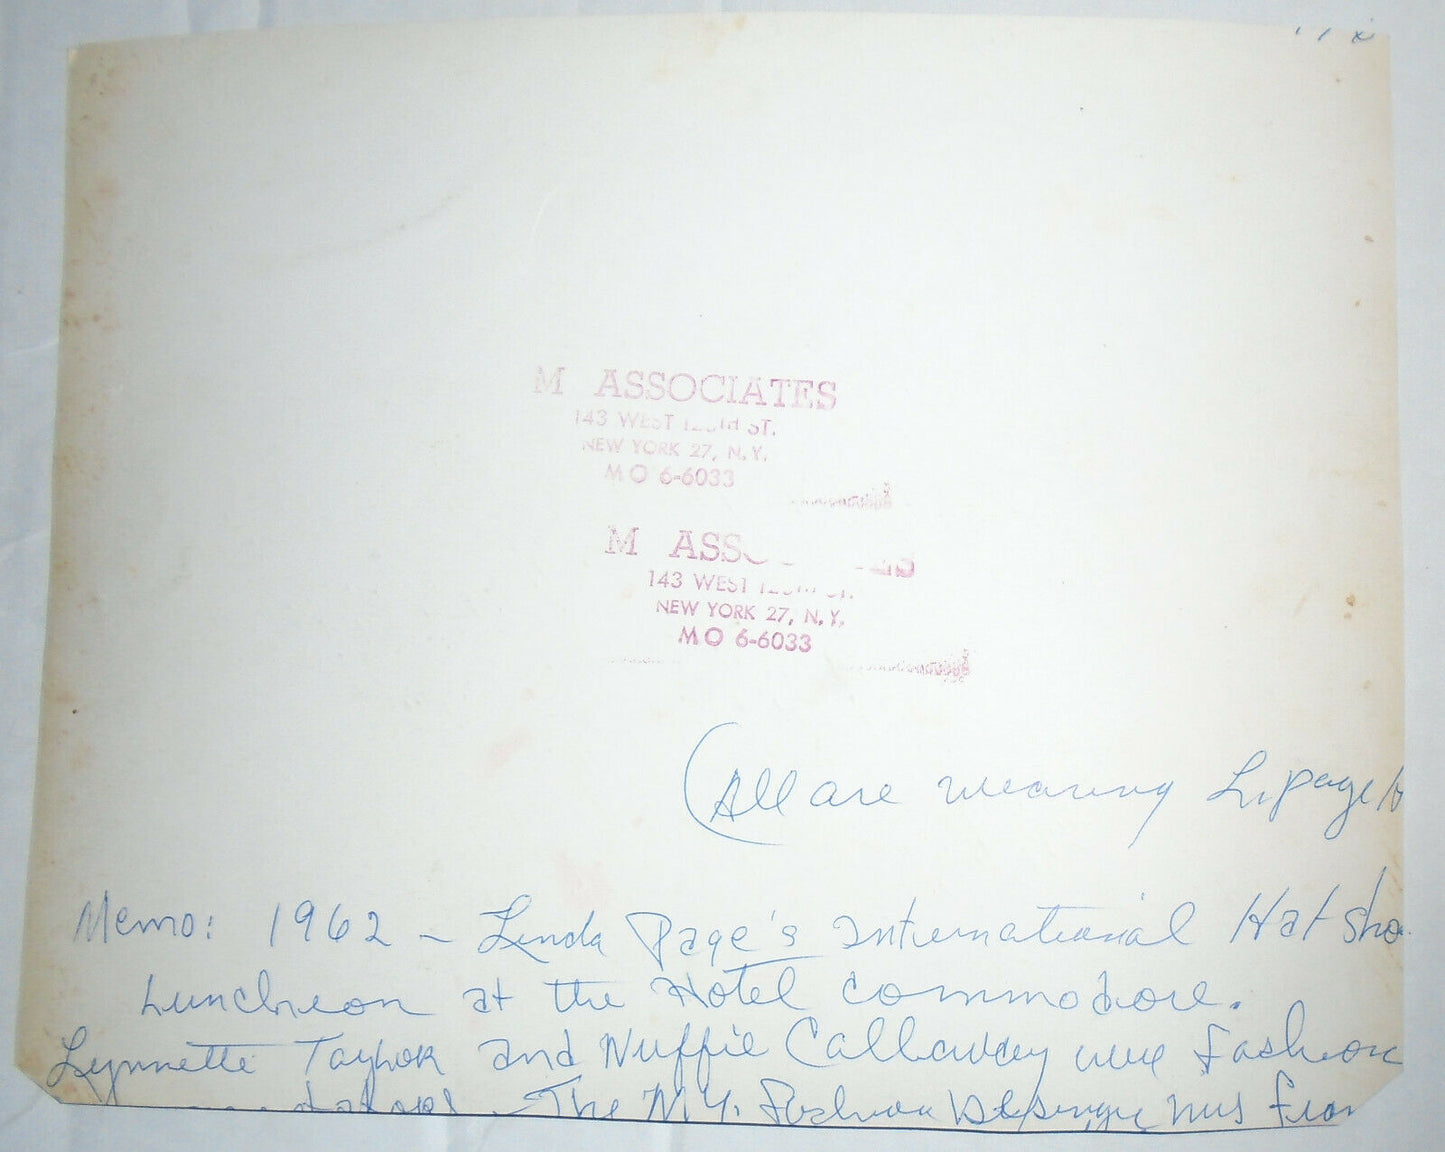 M ASSOCIATES
143 WEST ST.
NEW YORK 27, N.Y.
MO 6-6033
M ASS
143 WEST
NEW YORK 27, N.Y.
MO 6-6033
(All are wearing L. page
Memo: 1962 - Linda Page's international Hat Sho
Luncheon at the Hotel Commodore.
Lynnette Taylor and Nuffie Callaway were fashion
The N.Y. Fashion